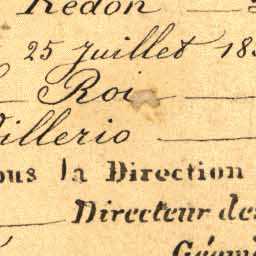 Redon
25 Juillet 18
Roi
illerio
ous la Direction
Directeur de
Géom